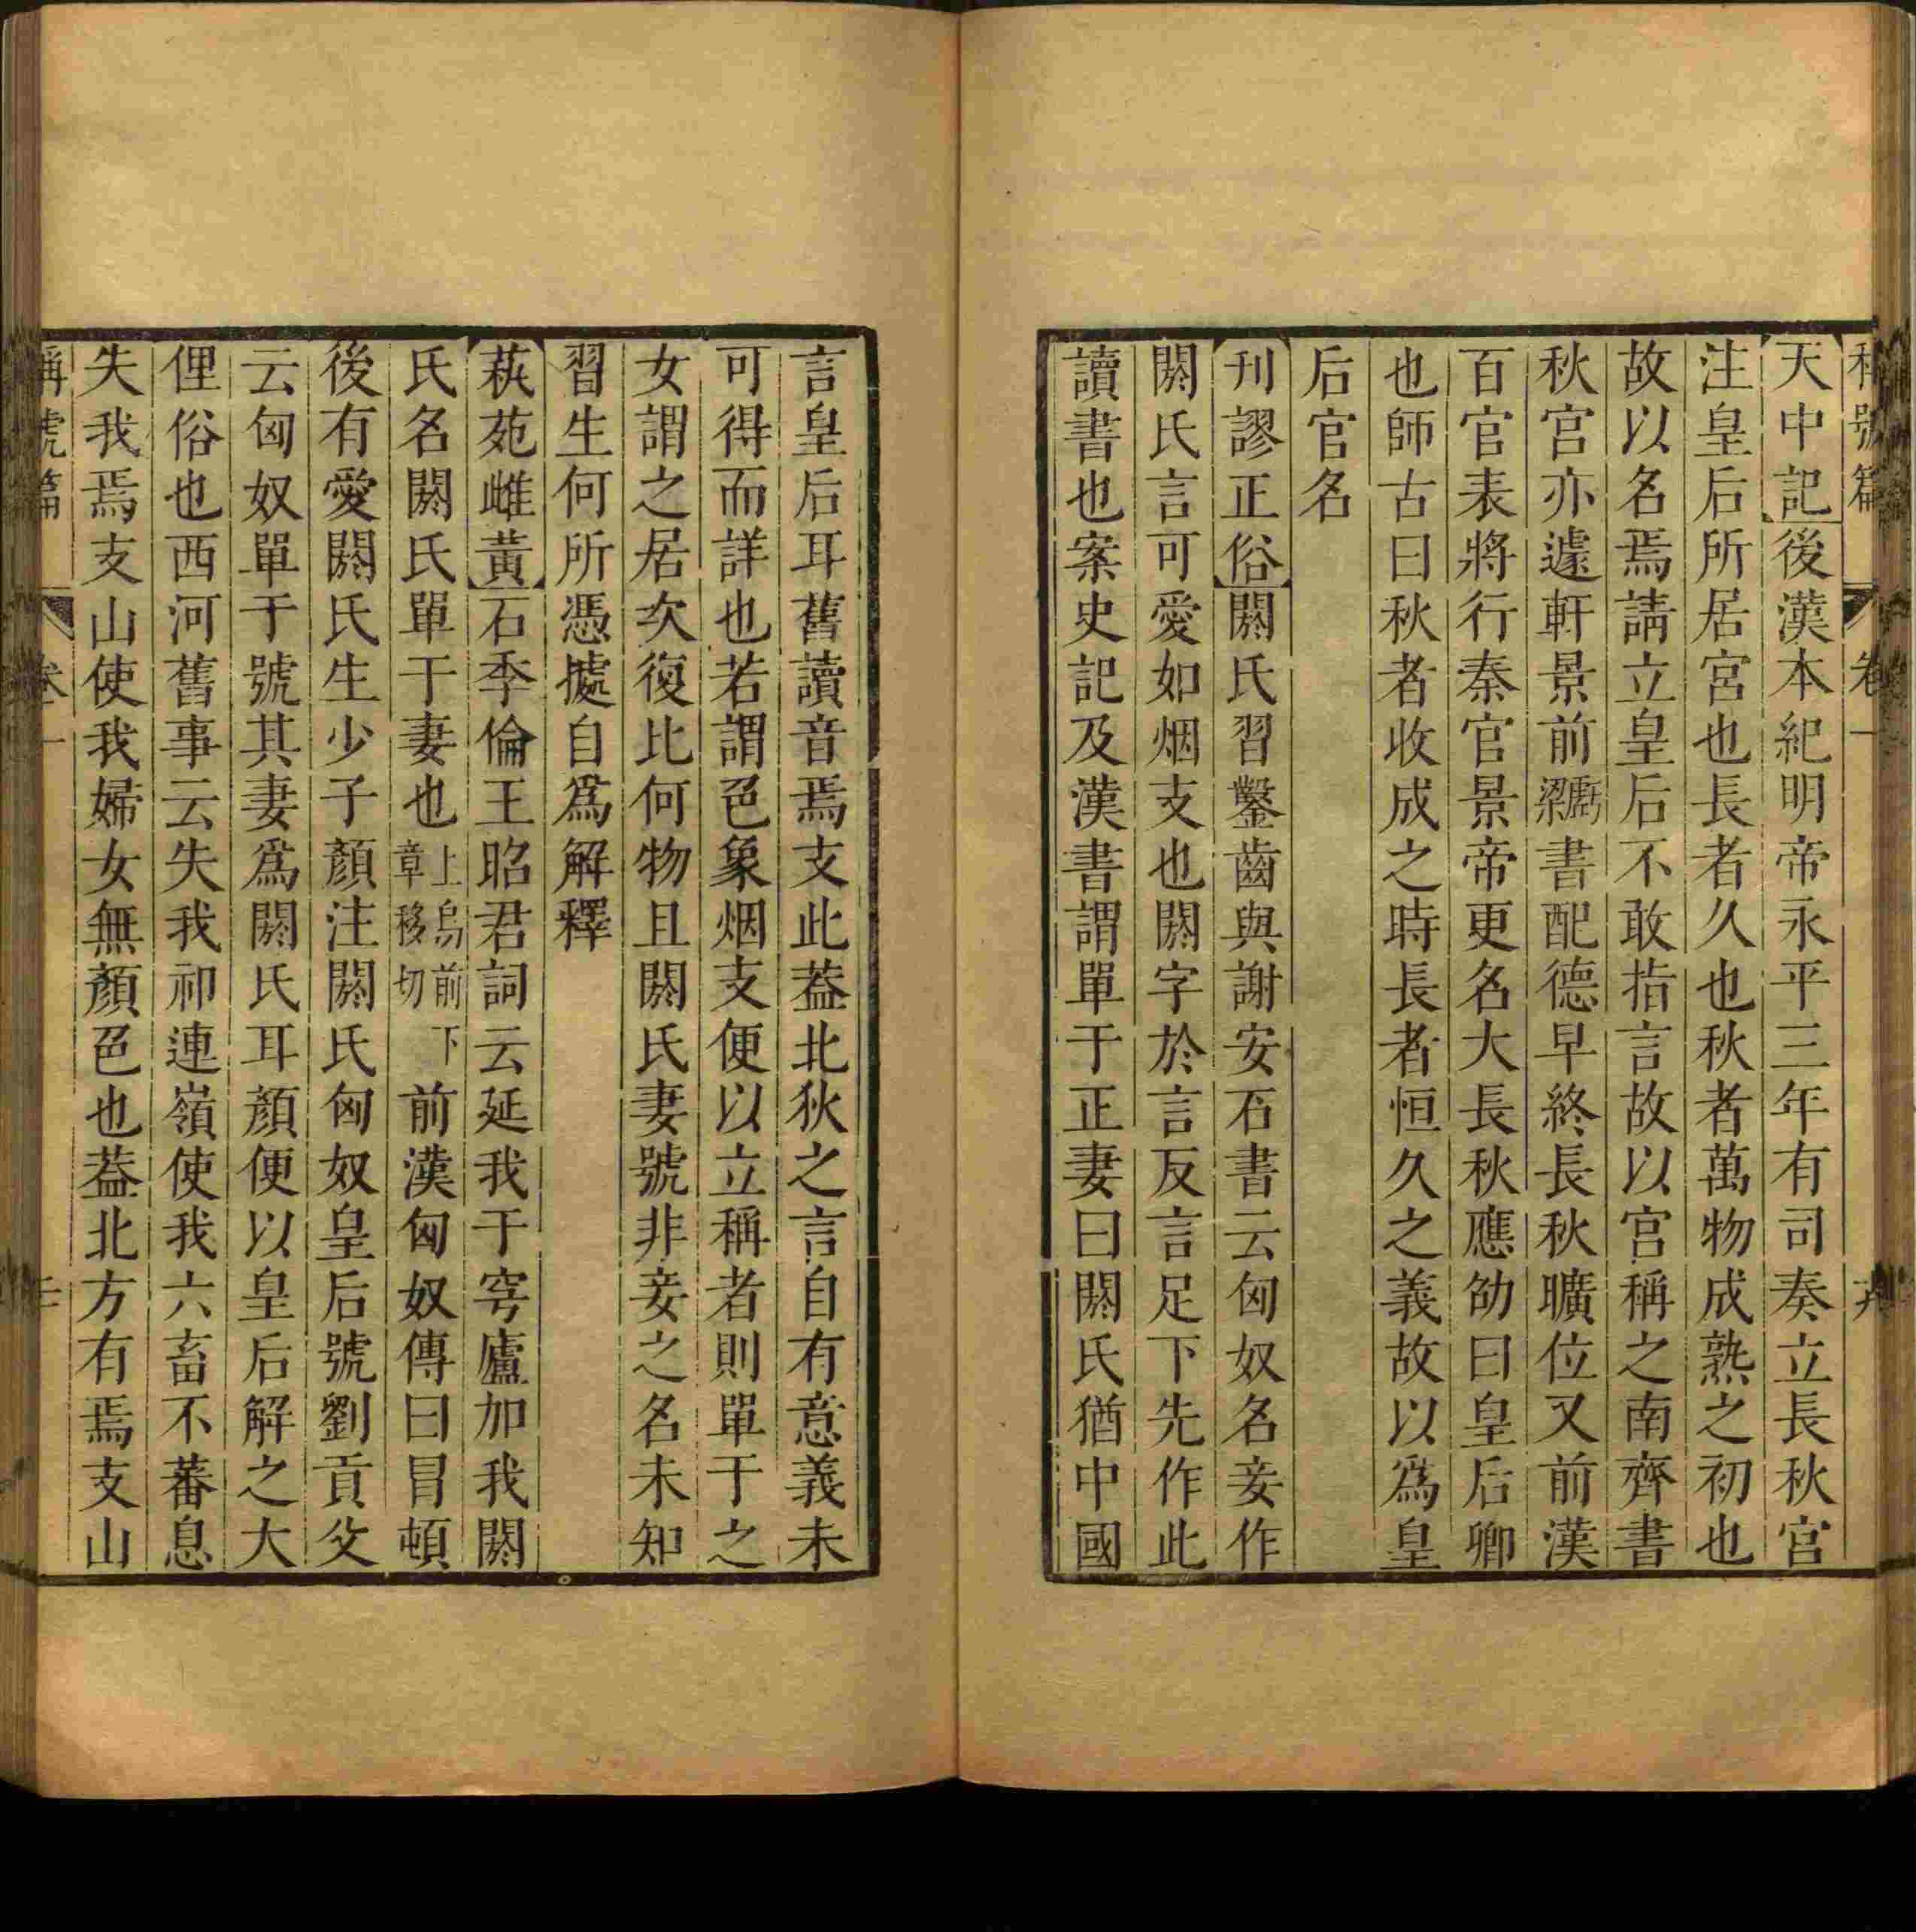 稱號篇 卷一
天中記後漢本紀明帝永平三年有司奏立長秋宮
注皇后所居宮也長者久也秋者萬物成熟之初也
故以名焉請立皇后不敢指言故以宮稱之南齊書
秋宮亦遽軒景前梁書配德早終長秋曠位又前漢
百官表將行秦官景帝更名大長秋應劭曰皇后卿
也師古曰秋者收成之時長者恒久之義故以為皇
后官名
刊謬正俗閼氏習鑿齒與謝安石書云匈奴名妾作
閼氏言可愛如烟支也閼字於言反言足下先作此
讀書也案史記及漢書謂單于正妻曰閼氏猶中國
言皇后耳舊讀音焉支此葢北狄之言自有意義未
可得而詳也若謂色象烟支便以立稱者則單于之
女謂之居次復比何物且閼氏妻號非妾之名未知
習生何所憑據自為解釋
蓺苑雌黃石季倫王昭君詞云延我于穹廬加我閼
氏名閼氏單于妻也上烏前下章移切前漢匈奴傳曰冒頓
後有愛閼氏生少子顏注閼氏匈奴皇后號劉貢父
云匈奴單于號其妻爲閼氏耳顏便以皇后解之大
俚俗也西河舊事云失我祁連嶺使我六畜不蕃息
失我焉支山使我婦女無顏色也葢北方有焉支山
稱號篇 卷一